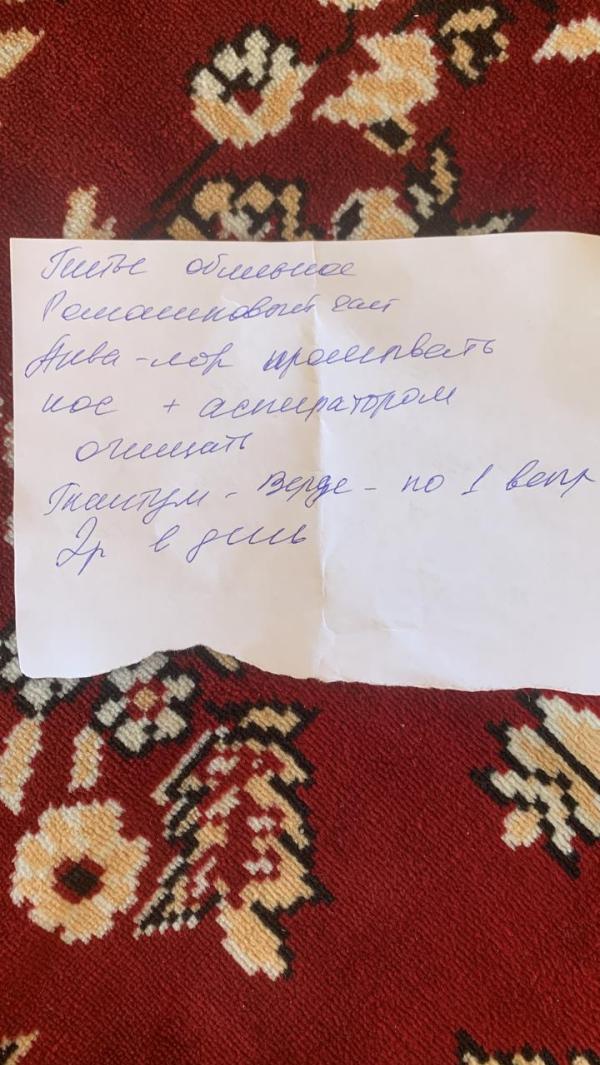 Питье обильное
Ромашковый чай
Аква-лор промывать
нос + аспиратором
очищать
Тантум - Верде - по 1 впр
2р в день